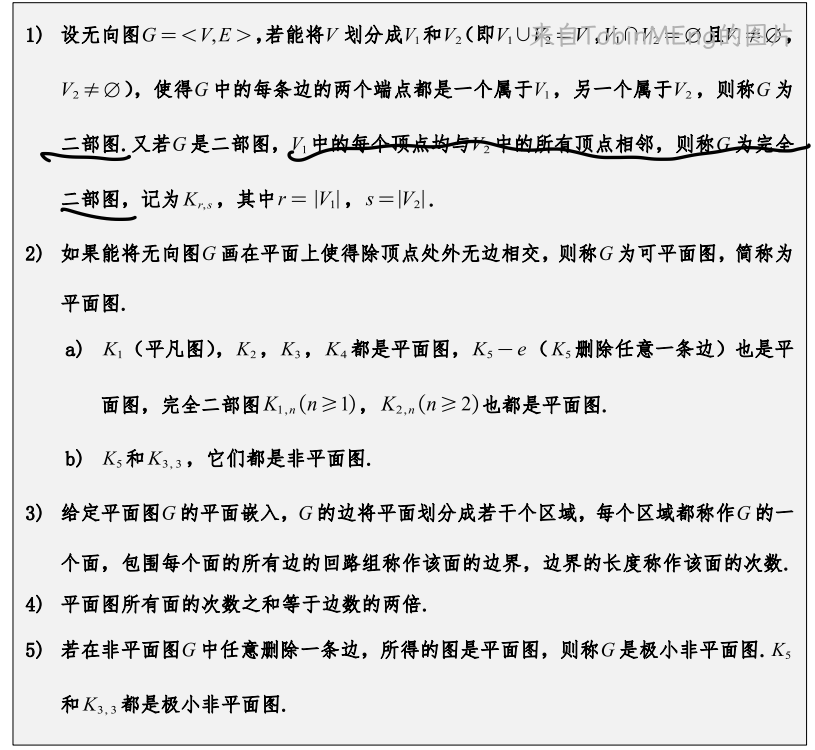 1) 设无向图G=<V,E>,若能将V划分成V₁和V₂(即V₁∪V₂=V,V₁∩V₂=∅且V₁≠∅,
来自TobinMEng的图片
V₂≠∅),使得G中的每条边的两个端点都是一个属于V₁,另一个属于V₂,则称G为
二部图.又若G是二部图,V₁中的每个顶点均与V₂中的所有顶点相邻,则称G为完全
二部图,记为Kᵣ,ₛ,其中r=|V₁|,s=|V₂|.
2) 如果能将无向图G画在平面上使得除顶点处外无边相交,则称G为可平面图,简称为
平面图.
a) K₁(平凡图),K₂,K₃,K₄都是平面图,K₅-e(K₅删除任意一条边)也是平
面图,完全二部图K₁,ₙ(n≥1),K₂,ₙ(n≥2)也都是平面图.
b) K₅和K₃,₃,它们都是非平面图.
3) 给定平面图G的平面嵌入,G的边将平面划分成若干个区域,每个区域都称作G的一
个面,包围每个面的所有边的回路组称作该面的边界,边界的长度称作该面的次数.
4) 平面图所有面的次数之和等于边数的两倍.
5) 若在非平面图G中任意删除一条边,所得的图是平面图,则称G是极小非平面图.K₅
和K₃,₃都是极小非平面图.